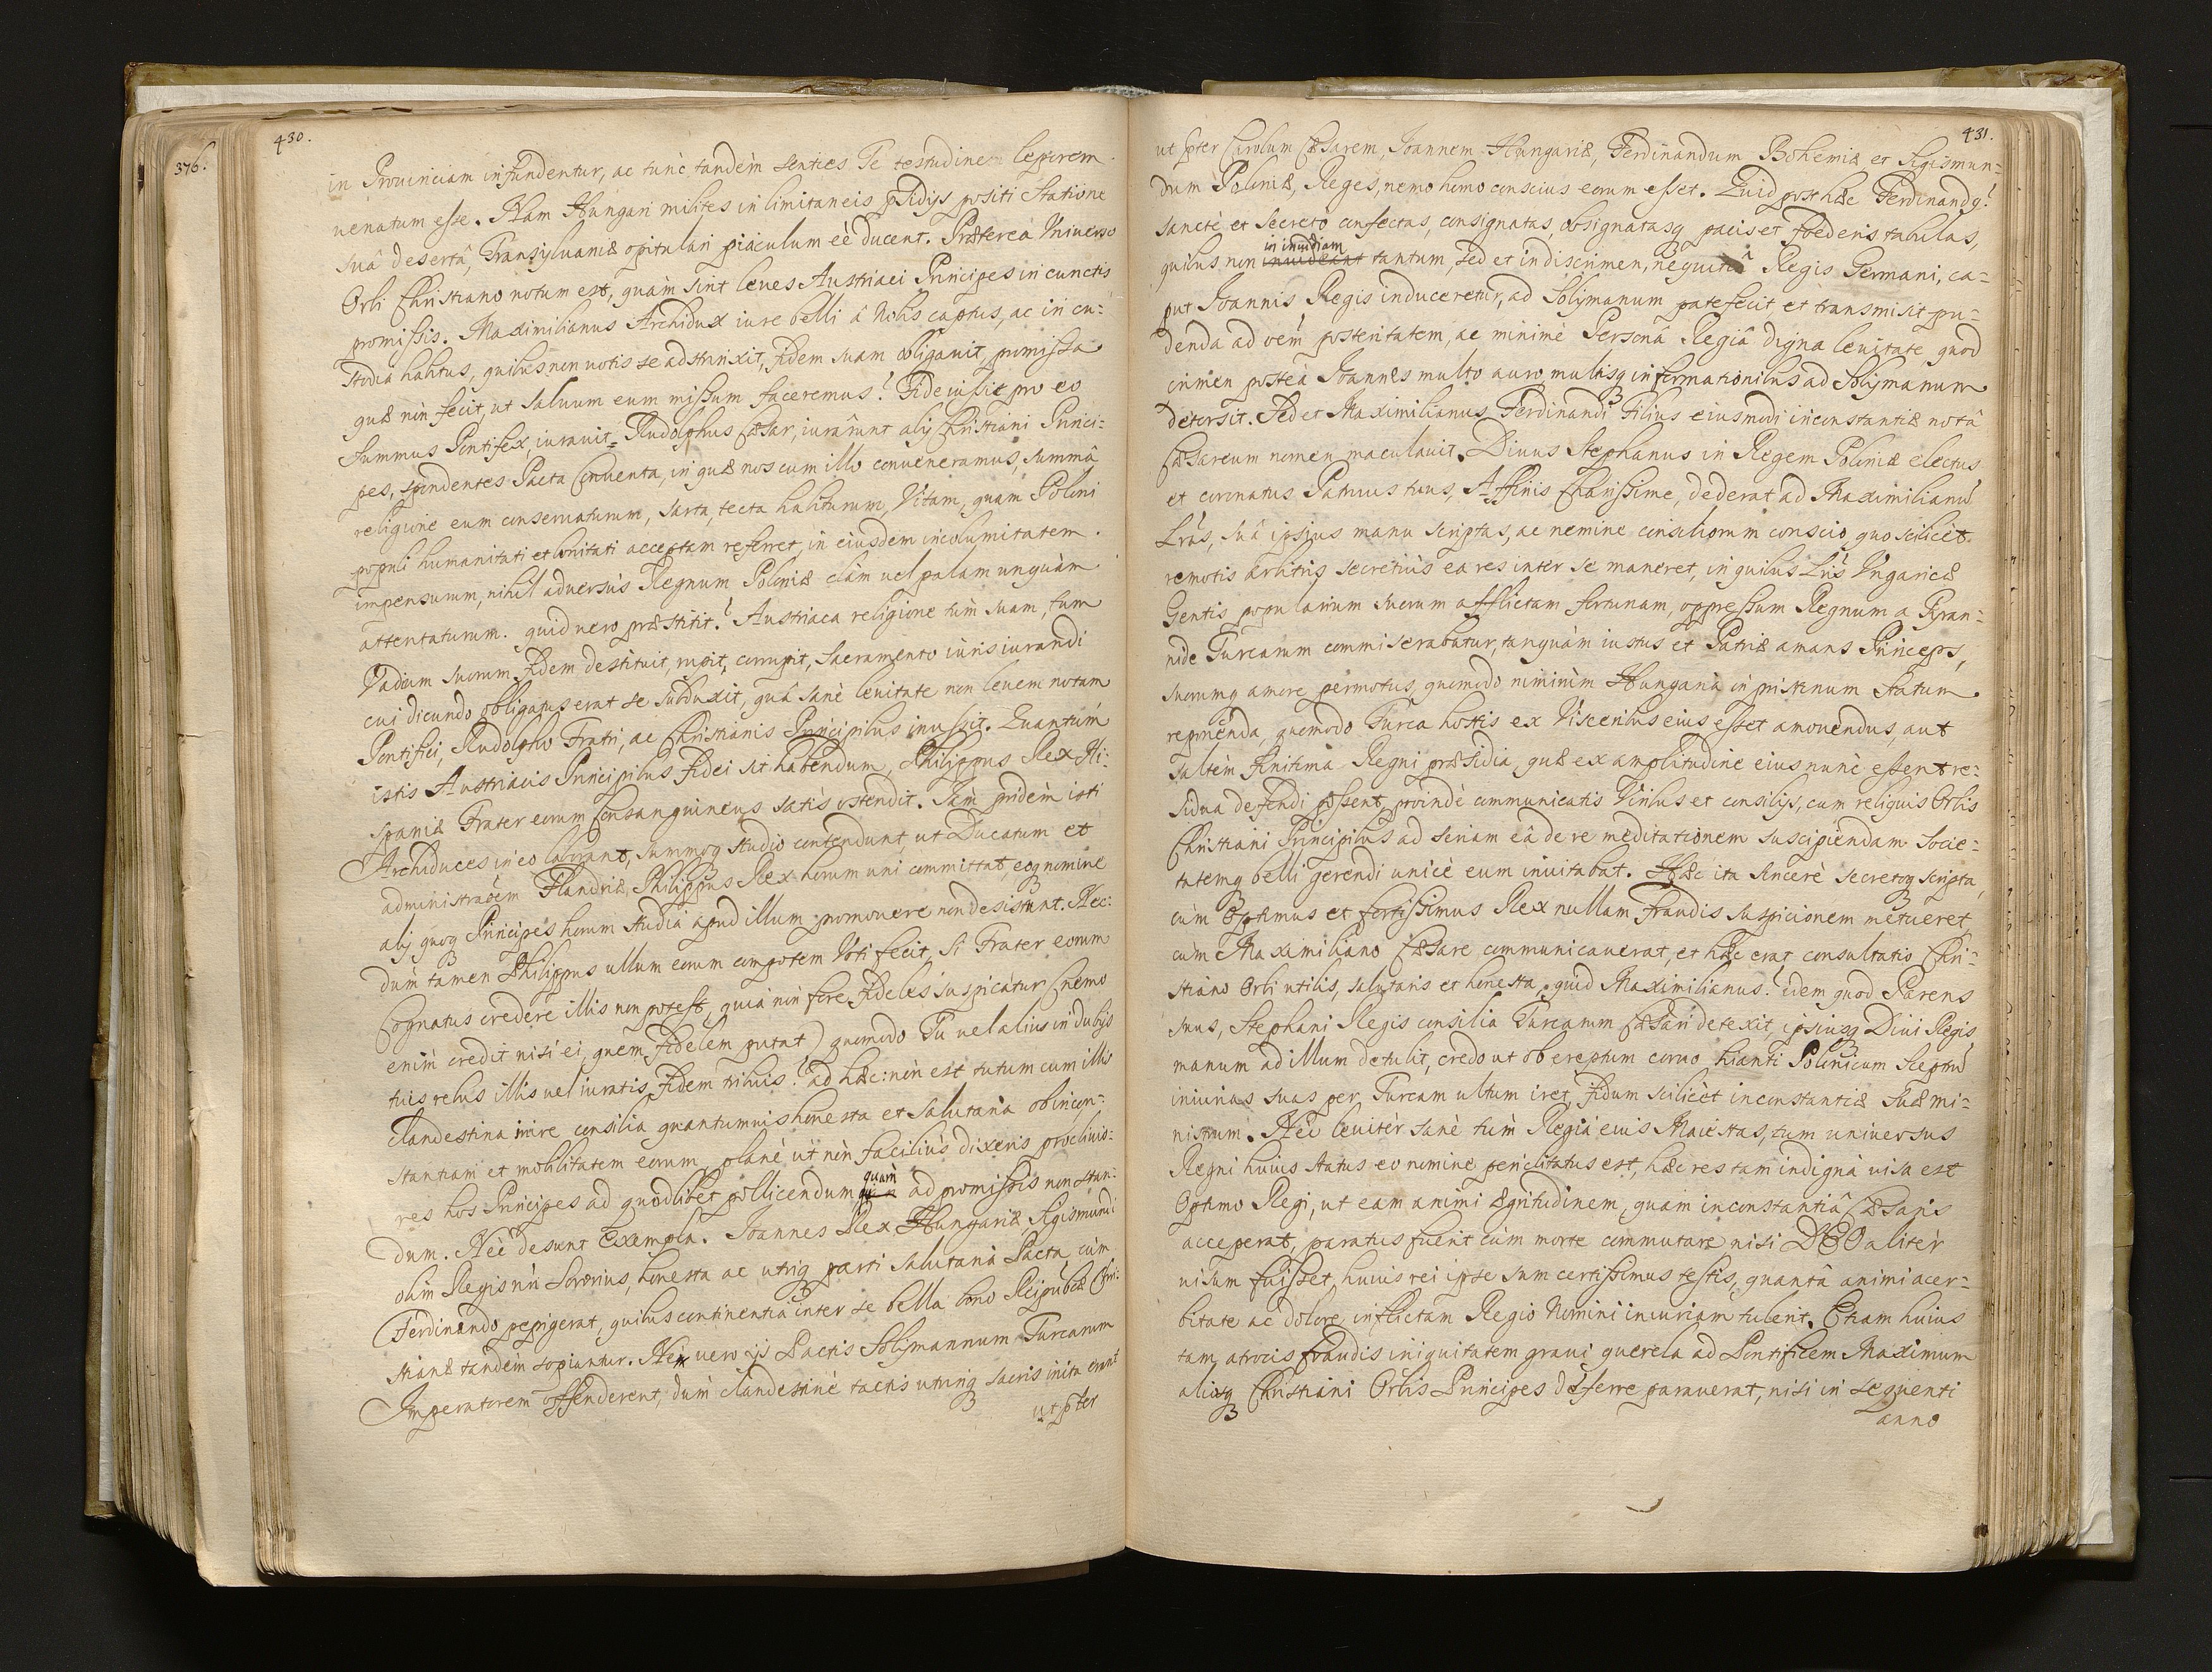 376.
430.
in Prouinciam infundentur, ac tunc tandèm senties Te testudine leporem
uenatum esse. Nam Hungari milites in limitaneis psidijs positi Statione
suâ desertâ, Transyluaniæ opitulari piaculum eê ducent. Præterea Vniuerso
Orbi Christiano notum est, quàm sint leues Austriaci Principes in cunctis
promissis. Maximilianus Archidux iure belli à Nobis captus, ac in cu-
stodia habitus, quibus non uotis se adstrinxit, fidem suam obligauit, promissa
quæ nõn fecit, ut saluum eum missum faceremus? Fideiussit pro eo
Summus Pontifex, iurauit Rudolphus Cæsar, iurârunt alij Christiani Princi-
pes, spondentes Pacta Conuenta, in quæ nos cum illo conueneramus, summâ
religione eum conseruaturum, sarta, tecta habiturum, Vitam, quam Poloni
populi humanitati et bonitati acceptam referret, in eiusdem incolumitatem
impensurum, nihil aduersùs Regnum Poloniæ clàm uel palam unquàm
attentaturum. quid uero præstitit? Austriaca religione tùm suam, tum
Vadum suorum fidem destituit, rupit, corrupit, Sacramento iuris iurandi
cui dicundo obligatus erat se subduxit, quâ sanè leuitate non leuem notam
Pontifici, Rudolpho Fratri, ac Christianis Principibus inussit. Quantùm
istis Austriacis Principibus fidei sit habendum, Philippus Rex Hi-
spaniæ Frater eorum Consanguineus satis ostendit. Iàm pridèm isti
Archiduces in eo laborant, summoq studio contendunt, ut Ducatum et
administraõem Flandriæ, Philippus Rex horum uni committat, eoq nomine
alij quoq Principes horum studia apud illum promouere non desistunt. Nec-
dum tamen Philippus ullum eorum compotem Voti fecit, Si Frater eorum
Cognatus credere illis non potest, quia nõn fore fideles suspicatur (nemo
enim credit nisi ei, quem fidelem putat) quomodo Tu uel alius in dubijs
tuis rebus illis uel iuratis fidem tribuis? ad hæc: nõn est tutum cum illis
clandestina inire consilia quantumuis honesta et salutaria ob incon-
stantiam et mobilitatem eorum, planè ut nõn faciliùs dixeris procliuio-
res hos Principes ad quodlibet pollicendum quàm ad promissis non stan-
dum. Neè desunt Exempla. Ioannes Rex Hungariæ, Sigismundi
olim Regis nri Sororius, honesta ac utriq parti salutaria Pacta, cùm
Ferdinando pepigerat, quibus continentia inter se bella bono Reipublcæ Chri-
stianæ tandèm sopiantur. Ne uero ijs Pactis Solymannum Turcarum
Imperatorem offenderent, dum clandestinè tactis utrinq sacris inita erant
ut pter
431.
ut pter Carolum Cæsarem, Ioannem Hungariæ, Ferdinandum Bohemiæ et Sigismun-
dum Poloniæ, Reges, nemo homo conscius eorum esset. Quid post hæc Ferdinandq?
sanctè et secretò confectas, consignatas, obsignatasq pacis et foederis tabulas,
in inuidiam
quibus non inuideant tantum, sed et in discrimen, nequitiâ Regis Germani, ca-
put Ioannis Regis induceretur, ad Solymanum patefecit, et transmisit pu-
denda ad oem̃ posteritatem, ac minimè Personâ Regiâ digna leuitate quod
crimen posteà Ioannes multo auro, multisq informationibus ad Solymanum
detersit. Sed et Maximilianus Ferdinandi Filius eiusmodi inconstantiæ notâ
Cæsareum nomen maculauit. Diuus Stephanus in Regem Poloniæ electus
et coronatus Patruus tuus, Affinis Charissime, dederat ad Maximilianũ
Lrâs, suâ ipsius manu scriptas, ac nemine consiliorum conscio, quo scilicèt
remotis arbitris secretiùs ea res inter se maneret, in quibus Lris Vngaricæ
Gentis popularium suorum afflictam fortunam, oppressum Regnum a Tyran-
nide Turcarum commiserabatur, tanquàm iustus et Patriæ amans Princeps,
suorumq amore permotus, quomodo nimirùm Hungaria in pristinum Statum
reponenda, quomodo Turca hostis ex Visceribus eius esset amouendus, aut
saltèm finitima Regni præsidia, quæ ex amplitudine eius nunc essent re-
sidua defendi possent, proindè communicatis Viribus et consilijs, cum reliquis Orbis
Christiani Principibus ad seriam eâ de re meditationem suscipiendam Socie-
tatemq belli gerendi unicè eum inuitabat. Hæc ita sincerè secretoq scripta,
cùm Optimus et fortissimus Rex nullam fraudis suspicionem metueret,
cùm Maximiliano Cæsare communicauerat, et hæc erat consultatio Chri-
stiano Orbi utilis, salutaris et honesta, quid Maximilianus? idem quod Parens
suus, Stephani Regis consilia Turcarum Cæsari detexit, ipsiusq Diui Regis
manum ad illum detulit, credo ut ob ereptum coruo hianti Polonicum Sceptrũ
iniurias suas per Turcam ultum iret, fidum scilicèt inconstantiæ suæ mi-
nistrum. Nèc leuitèr sanè tùm Regia eius Maiestas, tum uniuersus
Regni huius status eo nomine periclitatus est, hæc res tam indigna uisa est
Optimo Regi, ut eam animi ægritudinem, quam inconstantiâ Cæsaris
acceperat, paratus fuerit cùm morte commutare nisi DEO alitèr
uisum fuisset, huius rei ipse sum certissimus testis, quantâ animi acer-
bitate ac dolore, inflictam Regio Nomini iniuriam tulerit. Etiam huius
tam atrocis fraudis iniquitatem graui querela ad Pontificem Maximum
aliosq Christiani Orbis Principes deferre parauerat, nisi in sequenti
anno